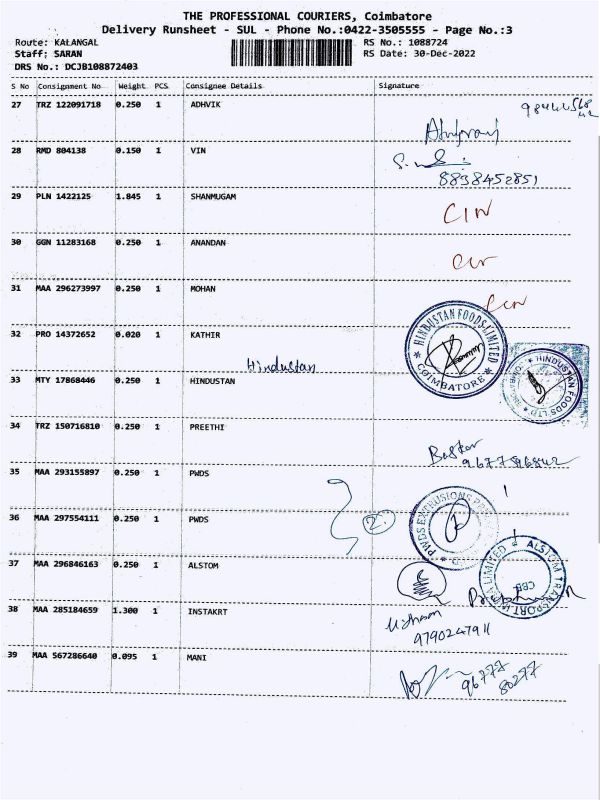 THE PROFESSIONAL COURIERS, Coimbatore
Delivery Runsheet - SUL - Phone No.:0422-3505555 - Page No.:3
Route: KALANGAL RS No.: 1088724
Staff: SARAN RS Date: 30-Dec-2022
DRS No.: DCJB108872403
S No Consignment No Weight PCS Consignee Details Signature
27 TRZ 122091718 0.250 1 ADHVIK
28 RMD 804138 0.150 1 VIN
8838452851
29 PLN 1422125 1.845 1 SHANMUGAM CIN
30 GGN 11283168 0.250 1 ANANDAN
31 MAA 296273997 0.250 1 MOHAN
32 PRO 14372652 0.020 1 KATHIR HINDUSTAN FOODS LIMITED COIMBATORE
Hindustan
33 MTY 17868446 0.250 1 HINDUSTAN HINDUSTAN FOODS LTD
34 TRZ 150716810 0.250 1 PREETHI
Baskar
35 MAA 293155897 0.250 1 PWDS
36 MAA 297554111 0.250 1 PWDS 2 PWDS EXTRUSIONS
37 MAA 296846163 0.250 1 ALSTOM ALSTOM TRANSPORT LIMITED CBE
38 MAA 285184659 1.300 1 INSTAKRT
39 MAA 567286640 0.095 1 MANI
96777
80277